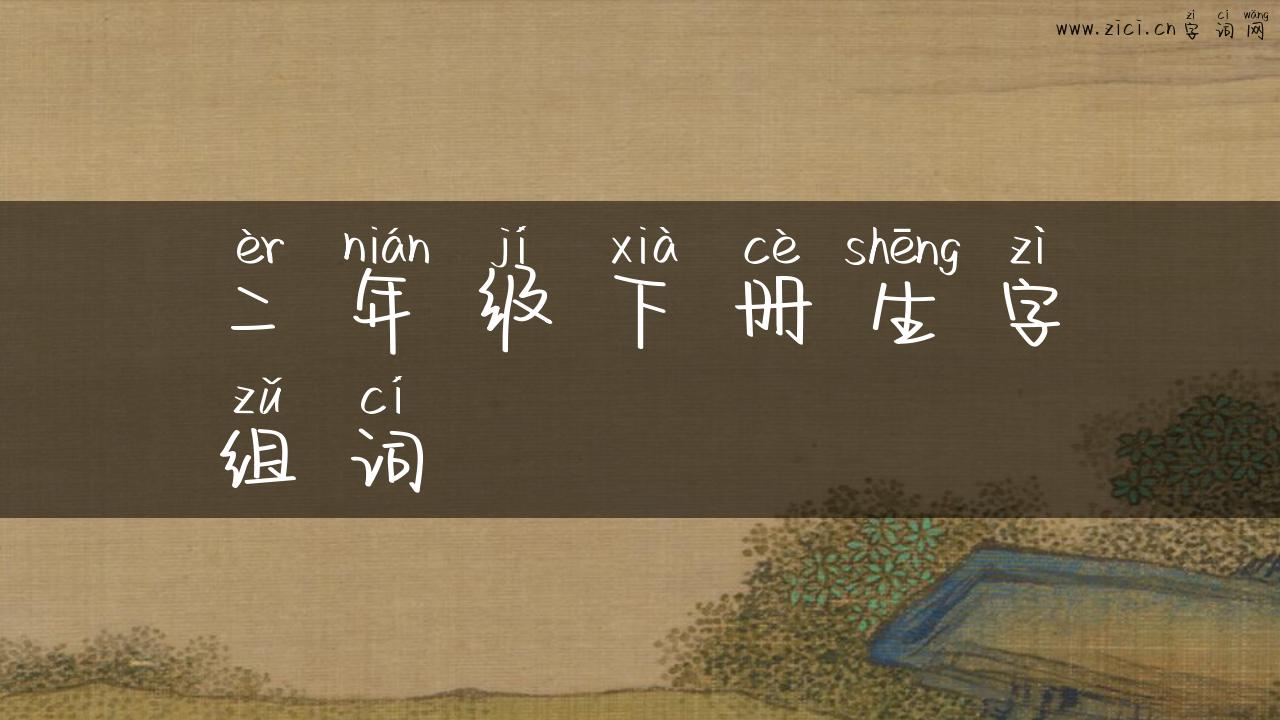 zì cí wǎng
www.zici.cn 字 词 网
èr nián jí xià cè shēng zì
二 年 级 下 册 生 字
zǔ cí
组 词